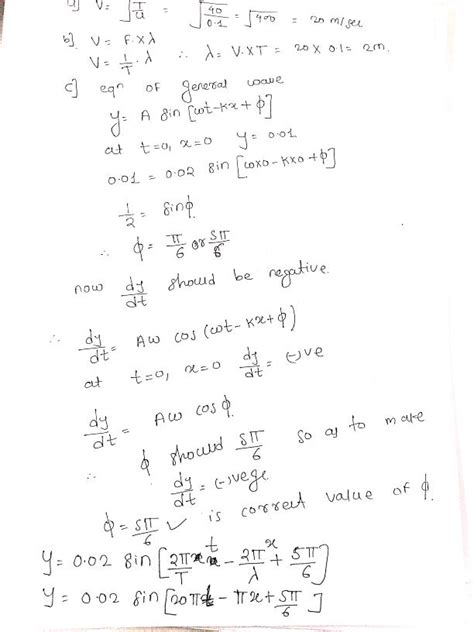 a] V = √(T/u) = √(40/0.1) = √400 = 20 m/sec
b] V = F.×λ
V = 1/T . λ ∴ λ = V.×T = 20 × 0.1 = 2m.
c] eqn of general wave
y = A sin [ωt - kx + ϕ]
at t=0, x=0 y = 0.01
0.01 = 0.02 sin [ω×0 - k×0 + ϕ]
1/2 = sinϕ.
∴ ϕ = π/6 or 5π/6
now dy/dt should be negative.
∴ dy/dt = Aω cos (ωt - kx + ϕ)
at t=0, x=0 dy/dt = (-)ve
dy/dt = Aω cosϕ.
∴ ϕ should 5π/6 so as to make
dy/dt = (-)vege
ϕ = 5π/6 ✓ is correct value of ϕ.
y = 0.02 sin [2π/T t - 2π/λ x + 5π/6]
y = 0.02 sin [20πt - πx + 5π/6]